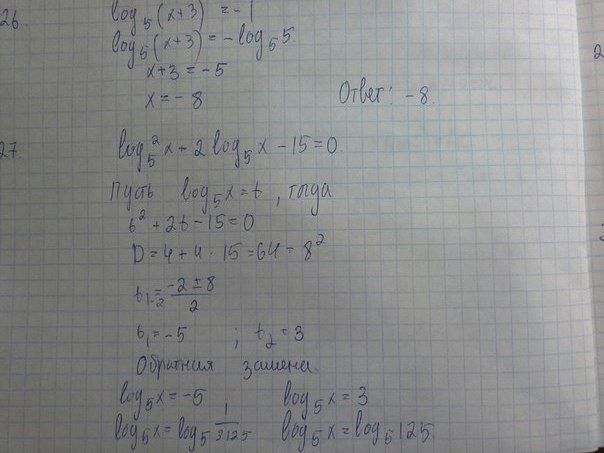 26. log₅(x+3) = -1
log₅(x+3) = -log₅5.
x+3 = -5
x = -8 Ответ: -8.
27 log₅²x + 2log₅x - 15 = 0.
Пусть log₅x = t, тогда
t² + 2t - 15 = 0
D = 4 + 4 · 15 = 64 = 8²
t₁,₂ = (-2 ± 8)/2
t₁ = -5 ; t₂ = 3
Обратная замена.
log₅x = -5 log₅x = 3
log₅x = log₅ 1/3125 log₅x = log₅125.